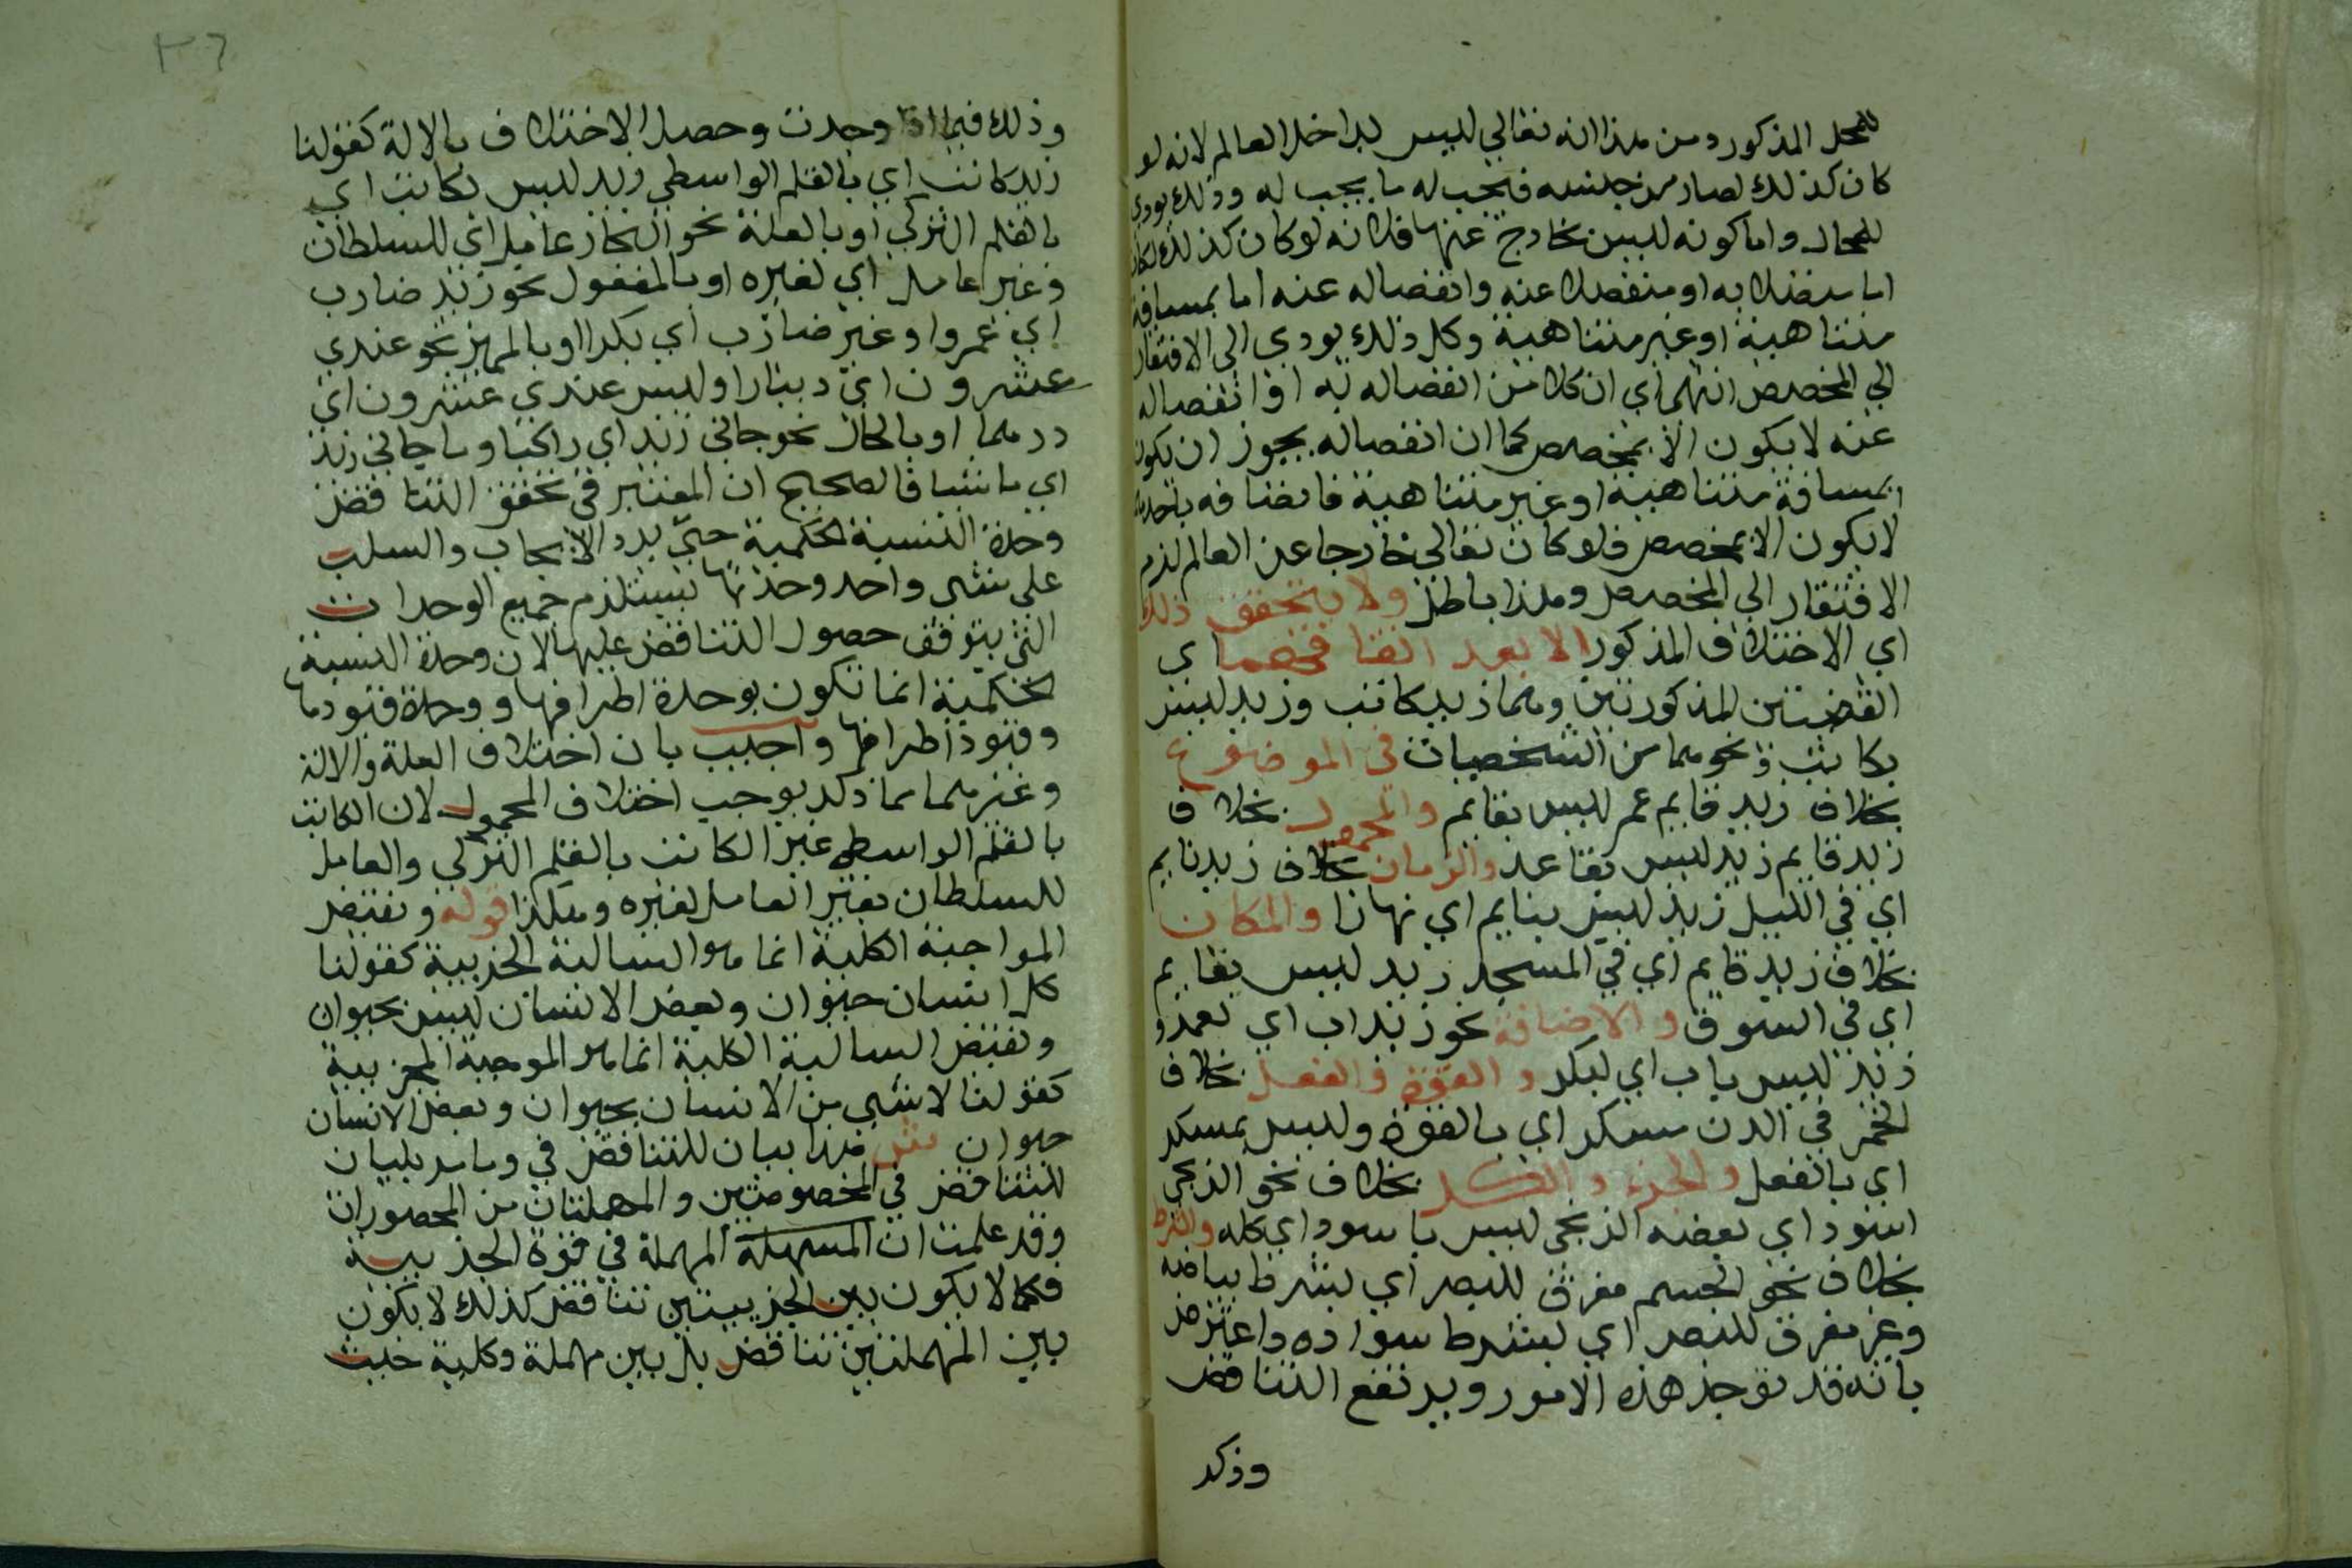 للمحل المذكور ومن هذا انه تعالي ليس بداخل العالم لانه لو
كان كذلك لصار من جنسه فيجب له ما يجب له وذلك يودي
للمحال واما كونه ليس بخارج عنها فلانه لو كان كذلك لكان
اما متصلا به او منفصلا عنه وانفصاله عنه اما بمسافة
متناهية او غير متناهية وكل ذلك يودي الى الافتقار
الي المخصص انتهي اي ان كلا من اتصاله به او انفصاله
عنه لا يكون الا بمخصص كما ان انفصاله يجوز ان يكون
بمسافة متناهية او غير متناهية فاتصافه باحدهما
لا يكون الا بمخصص فلو كان تعالى خارجا عن العالم لزم
الافتقار الي المخصص وهذا باطل ولا يتحقق ذلك
اي الاختلاف المذكور الا بعد اتفاقهما اي
القضيتين المذكورتين وهما زيد كاتب وزيد ليس
بكاتب ونحوهما من الشخصيات في الموضوع
بخلاف زيد قايم عمر ليس بقايم والمحمول بخلاف
زيد قايم زيد ليس بقاعد والزمان بخلاف زيد نايم
اي في الليل زيد ليس بنايم اي نهارا والمكان
بخلاف زيد قايم اي في المسجد زيد ليس بقايم
اي في السوق والاضافة نحو زيد اب اي لعمرو
زيد ليس باب اي لبكر والقوة والفعل بخلاف
الخمر في الدن مسكر اي بالقوة وليس بمسكر
اي بالفعل والجزء والكل بخلاف نحو الزنجي
اسود اي بعضه الزنجي ليس باسود اي كله والشرط
بخلاف نحو الجسم مفرق للبصر اي بشرط بياضه
وغير مفرق للبصر اي بشرط سواده واعترض
بانه قد توجد هذه الامور ويرتفع التناقض
وذكر
٣٦
وذلك فيما اذا وجدت وحصل الاختلاف بالالة كقولنا
زيد كاتب اي بالقلم الواسطي زيد ليس بكاتب اي
بالقلم التركي او بالعلة نحو النجار عامل اي للسلطان
وغير عامل اي لغيره او بالمفعول نحو زيد ضارب
اي عمروا وغير ضارب اي بكرا او بالمميز نحو عندي
عشرون اي دينارا وليس عندي عشرون اي
درهما او بالحال نحو جاني زيد اي راكبا وما جاني زيد
اي ماشيا فالصحيح ان المعتبر في تحقق التناقض
وحدة النسبة الحكمية حتي يرد الايجاب والسلب
على شي واحد وحدتها يستلزم جميع الوحدات
التي يتوقف حصول التناقض عليها لان وحدة النسبة
الحكمية انما تكون بوحدة اطرافها ووحدة قيودها
وقيود اطرافها واجيب بان اختلاف العلة والالة
وغيرهما مما ذكر يوجب اختلاف المحمول لان الكاتب
بالقلم الواسطي غير الكاتب بالقلم التركي والعامل
للسلطان بغير العامل لغيره وهكذا قوله ونقيض
المواجبة الكلية انما هو السالبة الجزيية كقولنا
كل انسان حيوان وبعض الانسان ليس بحيوان
ونقيض السالبة الكلية انما هو الموجبة الجزيية
كقولنا لا شي من الانسان بحيوان وبعض الانسان
حيوان ش هذا بيان للتناقض في وما مر بليان
للتناقض في المخصوصتين والمهملتان من المحصورات
وقد علمت ان المسهلة المهملة في قوة الجزيية
فكما لا يكون بين الجزييتين تناقض كذلك لا يكون
بين المهملتين تناقض بل بين مهملة وكلية حيث